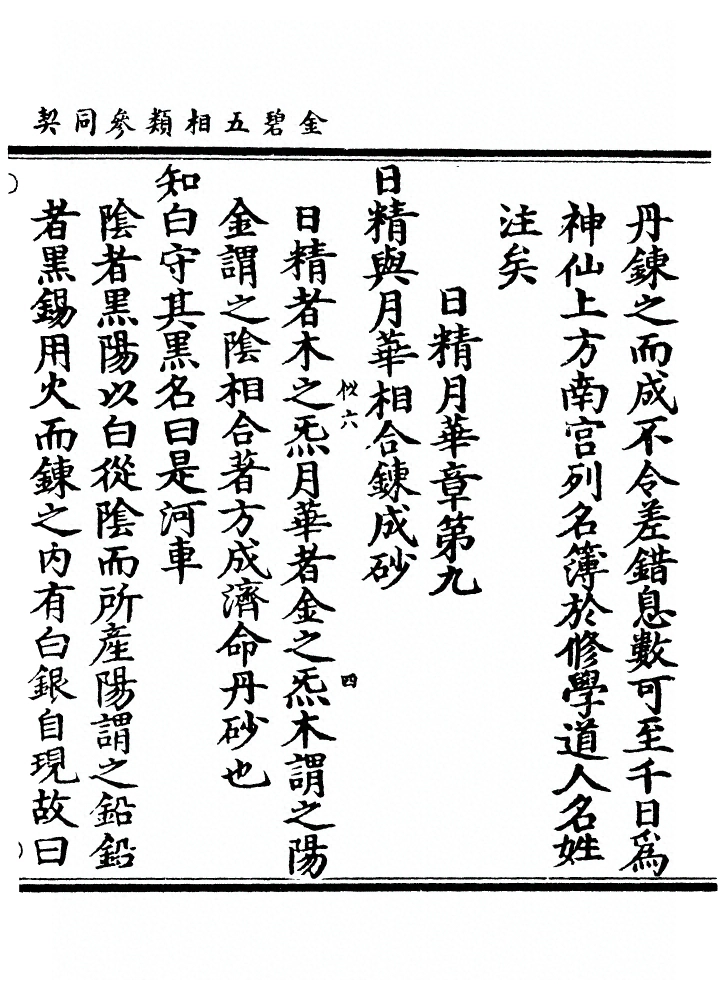 金碧五相類參同契
丹鍊之而成不令差錯息數可至千日為
神仙上方南宮列名簿於修學道人名姓
注矣
日精月華章第九
日精與月華相合鍊成砂
日精者木之炁月華者金之炁木謂之陽
金謂之陰相合著方成濟命丹砂也
知白守其黑名曰是河車
陰者黑陽以白從陰而所產陽謂之鉛鉛
者黑錫用火而鍊之內有白銀自現故曰
六
四